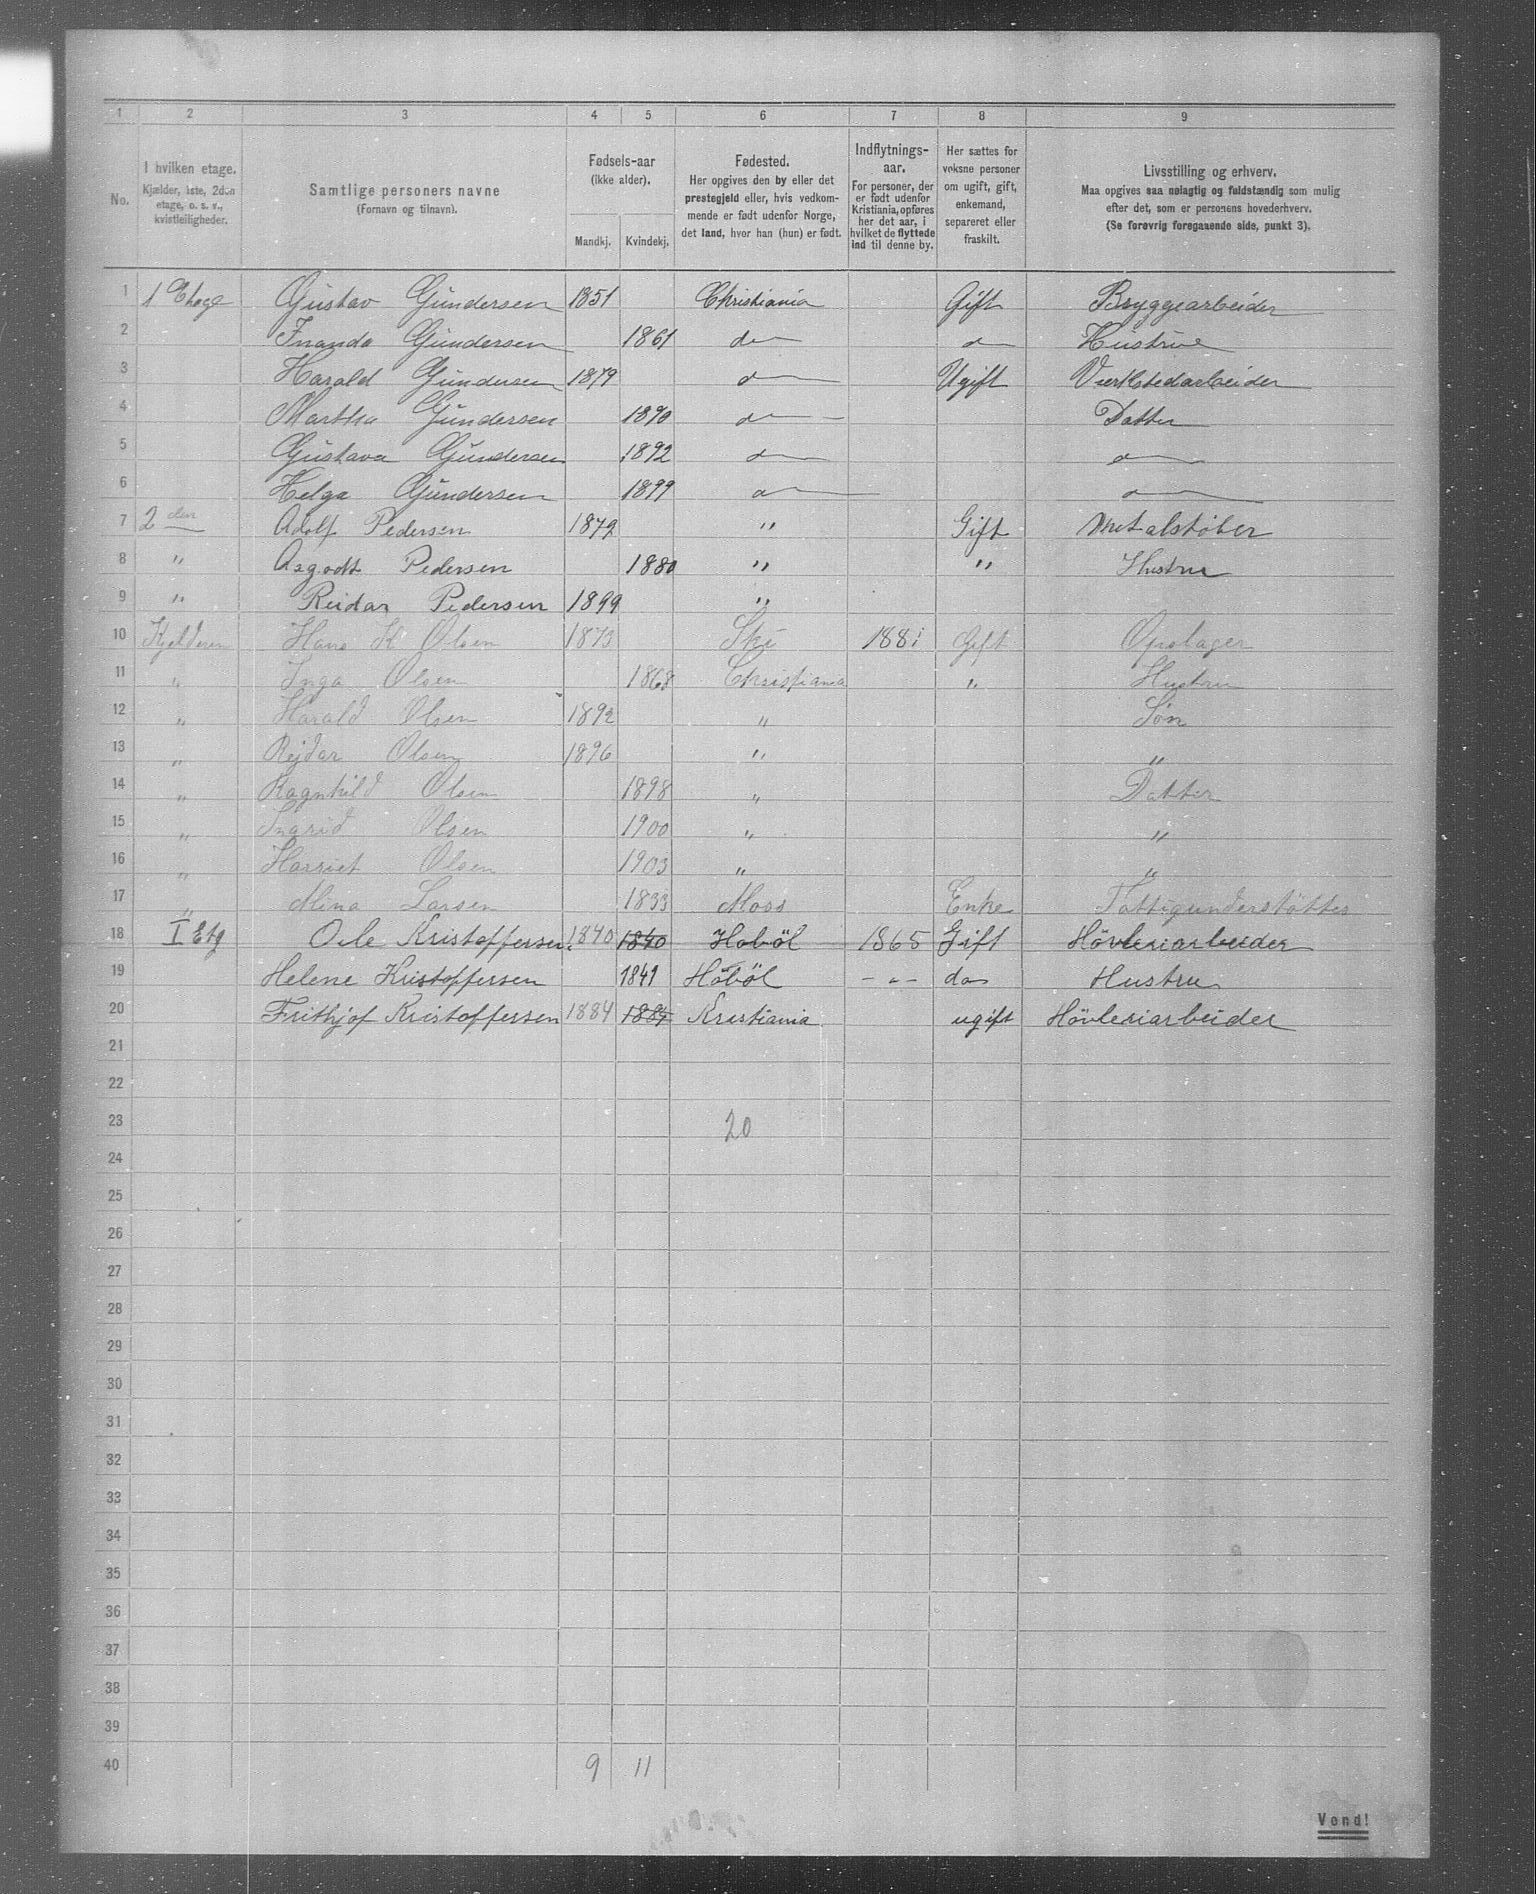 1 2 3 4 5 6 7 8 9
No. I hvilken etage. Kjælder, 1ste, 2den etage, o. s. v., kvistleiligheder. Samtlige personers navne (Fornavn og tilnavn). Fødsels-aar (ikke alder). Mandkj. Kvindekj. Fødested. Her opgives den by eller det prestegjeld eller, hvis vedkommende er født udenfor Norge, det land, hvor han (hun) er født. Indflytnings-aar. For personer, der er født udenfor Kristiania, opføres her det aar, i hvilket de flyttede ind til denne by. Her sættes for voksne personer om ugift, gift, enkemand, separeret eller fraskilt. Livsstilling og erhverv. Maa opgives saa nøiagtig og fuldstændig som mulig efter det, som er personens hovederhverv. (Se forøvrig foregaaende side, punkt 3).
1 1 Etage Gustav Gundersen 1851 Christiania Gift Bryggearbeider
2 Gundersen 1861 do do Hustrue
3 Harald Gundersen 1879 d Ugift Værkstedarbeider
4 Martha Gundersen 1890 do Datter
5 Gustava Gundersen 1892 d d
6 Helga Gundersen 1899 d d
7 2 den Adolf Pedersen 1872 " Gift Metalstøber
8 " Asgodt Pedersen 1880 " " Hustru
9 " Reidar Pedersen 1899 "
10 Kjelderen Hans K Olsen 1873 Ski 1881 Gift Opslager
11 " Inga Olsen 1868 Christiania " Hustru
12 " Harald Olsen 1892 " Søn
13 " Rejdar Olsen 1896 " "
14 " Ragnhild Olsen 1898 " Datter
15 " Ingrid Olsen 1900 " "
16 " Harriet Olsen 1903 " "
17 " Mina Larsen 1833 Moss Enke Fattigunderstøttes
18 I Etg Ole Kristoffersen 1840 1840 Hoböl 1865 Gift Hövleriarbeider
19 Helene Kristoffersen 1841 Hoböl -"- do Hustru
20 Frithjof Kristoffersen 1884 1884 Kristiania ugift Hövleriarbeider
21
22
23 20
24
25
26
27
28
29
30
31
32
33
34
35
36
37
38
39
40 9 11
Vend!